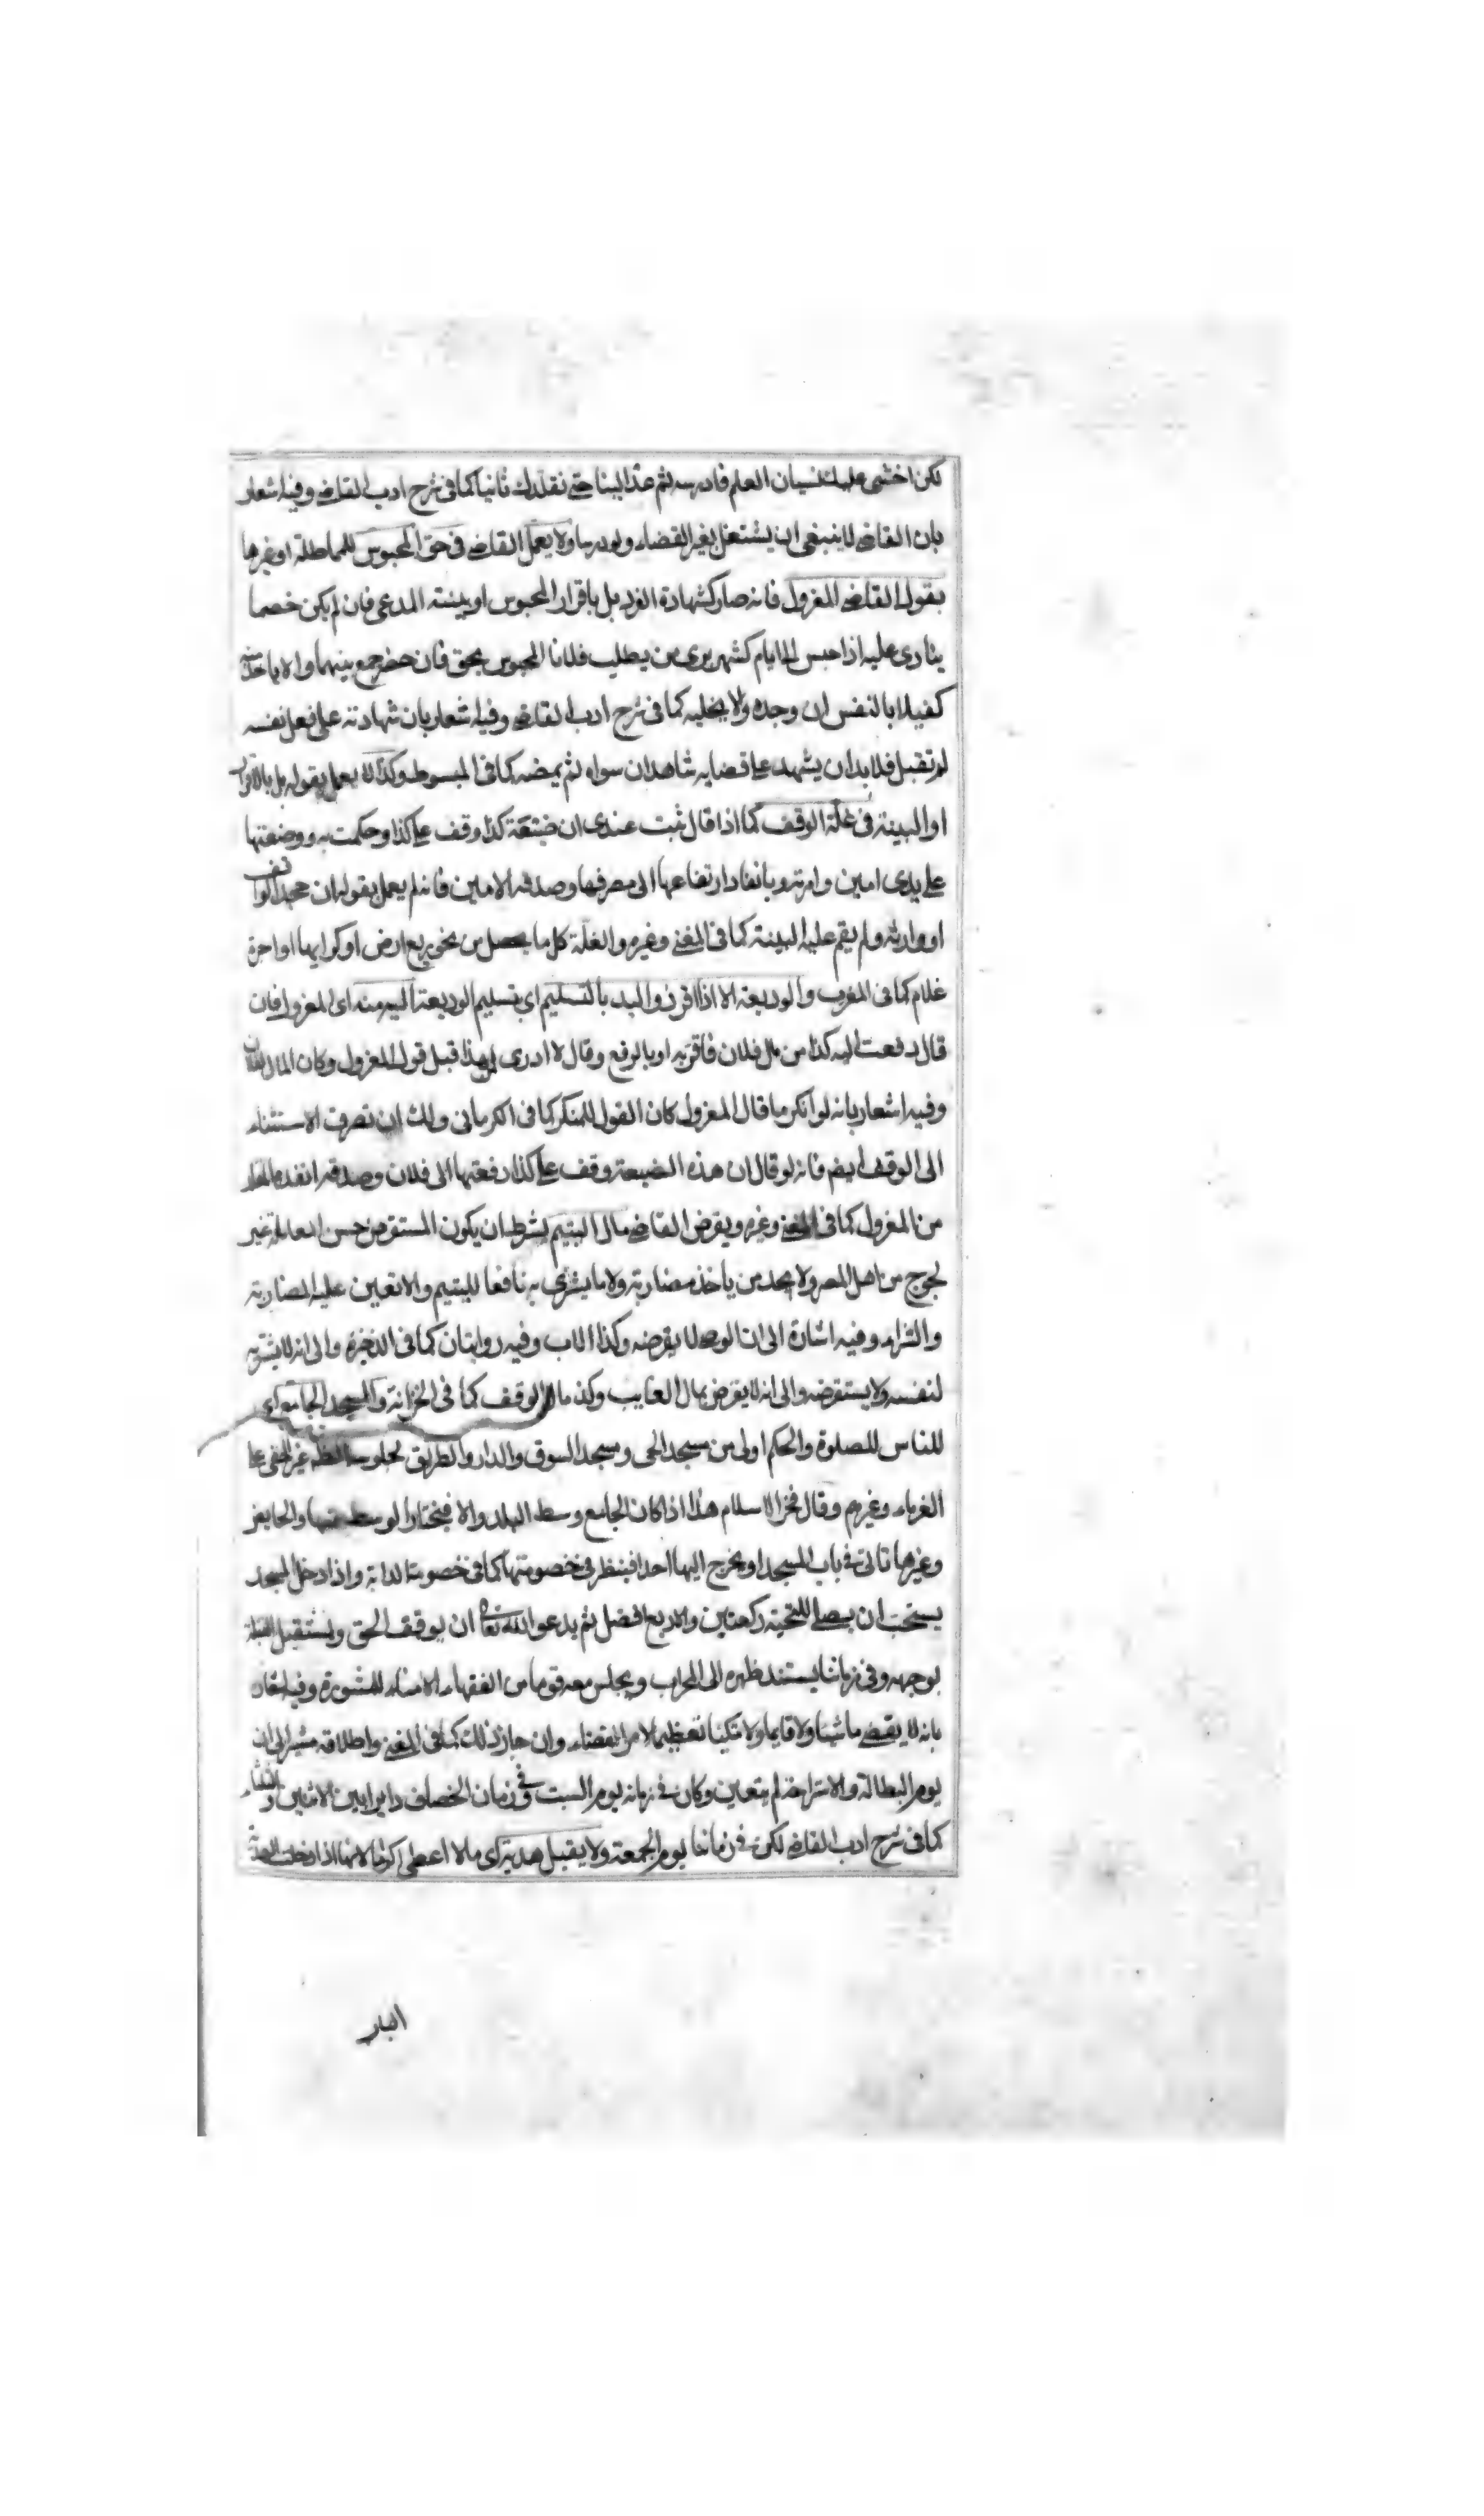 لكن اخشى عليك نسيان العلم فادرسه ثم عد الينا حتى نقلدك ثانيا كما فى شرح ادب القاضى وفيه اشعار
بان القاضى لا ينبغى ان يشتغل بغير القضاء ولو درسا ولا يعمل القاضى فى حق المحبوس للمماطلة او غيرها
بقول القاضى المعزول فانه صار كشهادة الفرد بل باقرار المحبوس او بينة المدعى فان لم يكن خصما
ينادى عليه اذا حبس الى ايام كشهر يرى من يطلب فلانا المحبوس بحق فان حضر جمع بينهما والا ياخذ منه
كفيلا بالنفس ان وجده ولا يخليه كما فى شرح ادب القاضى وفيه اشعار بان شهادته على فعل نفسه
لم تقبل فلا بد ان يشهد على قضايه شاهدان سواه ثم يمضه كما فى المبسوط وكذا لا يعمل بقوله بل بالاقرار
او البينة فى غلة الوقف كما اذا قال ثبت عندى ان ضيعة كذا وقف على كذا وحكمت به ووضعتها
على يدى امين وامرته بانفاد ارتفاعها الى مصرفها وصدقه الامين فانه لم يعمل بقوله ان جحد الواقف
او وارثه ولم يقم عليه البينة كما فى المغنى وغيره والغلة كل ما يحصل من نحو ريع ارض او كرايها او اجرة
غلام كما فى المغرب والوديعة الا اذا اقر ذو اليد بالتسليم اى بتسليم الوديعة اليه منه اى المعزول فان
قال دفعت اليه كذا من مال فلان فاقر به او بالرفع وقال لا ادرى لمن هذا قبل قول المعزول وكان المال لفلان
وفيه اشعار بانه لو انكر ما قال المعزول كان القول للمنكر كما فى الكرمانى ولك ان تصرف الاستثناء
الى الوقف ايضم فانه لو قال ان هذه الضيعة وقف على كذا دفعتها الى فلان وصدقه انفده
من المعزول كما فى المغنى وغيره ويقرض القاضى مال اليتيم بشرط ان يكون المستقرض حسن المعاملة غير
لجوج من اهل المصر ولا يجد من ياخذ مضاربة ولا ما يشترى به نافعا لليتيم والا تعين عليه المضاربة
والشراء وفيه اشارة الى ان الوصى لا يقرضه وكذا الاب وفيه روايتان كما فى الذخيرة والى انه لا يشتريه
لنفسه ولا يستقرضه والى انه لا يقرض مال الغايب وكذ مال الوقف كما فى الخزانة والمسجد الجامع اى
للناس للصلوة والحكم اولى من مسجد الحى ومسجد السوق والدار والطريق لجلوسه غير الخفى على
الغرباء وغيرهم وقال فخر الاسلام هذا اذا كان الجامع وسط البلد والا فيختار الوسط منها والحايض
وغيرها تاتى فى باب المسجد او يخرج اليها احدا فينظر فى خصومتها كما فى خصومة الدابة واذا دخل المسجد
يستحب ان يصلى للتحية ركعتين والاربع افضل ثم يدعو الله تعالى ان يوفقه الحق ويستقبل القبلة
بوجهه وفى زماننا يستند ظهره الى المحراب ويجلس معه قوما من الفقهاء الامناء للمشورة وفيه اشعار
بانه لا يقضى ماشيا ولا قايما ولا متكيا تعظيما لامر القضاء وان جاز ذلك كما فى المغنى واطلاقه مشير الى ان
يوم البطالة والاستراحة لم يتعين وكان فى زمانه يوم السبت وفى زمان الخصاف دايرا بين الاثنين والثلثاء
كما فى شرح ادب القاضى لكن فى زماننا يوم الجمعة ولا يقبل هدية اى مالا اعطى اكراما لانها اذا دخلت الهدية
الباب